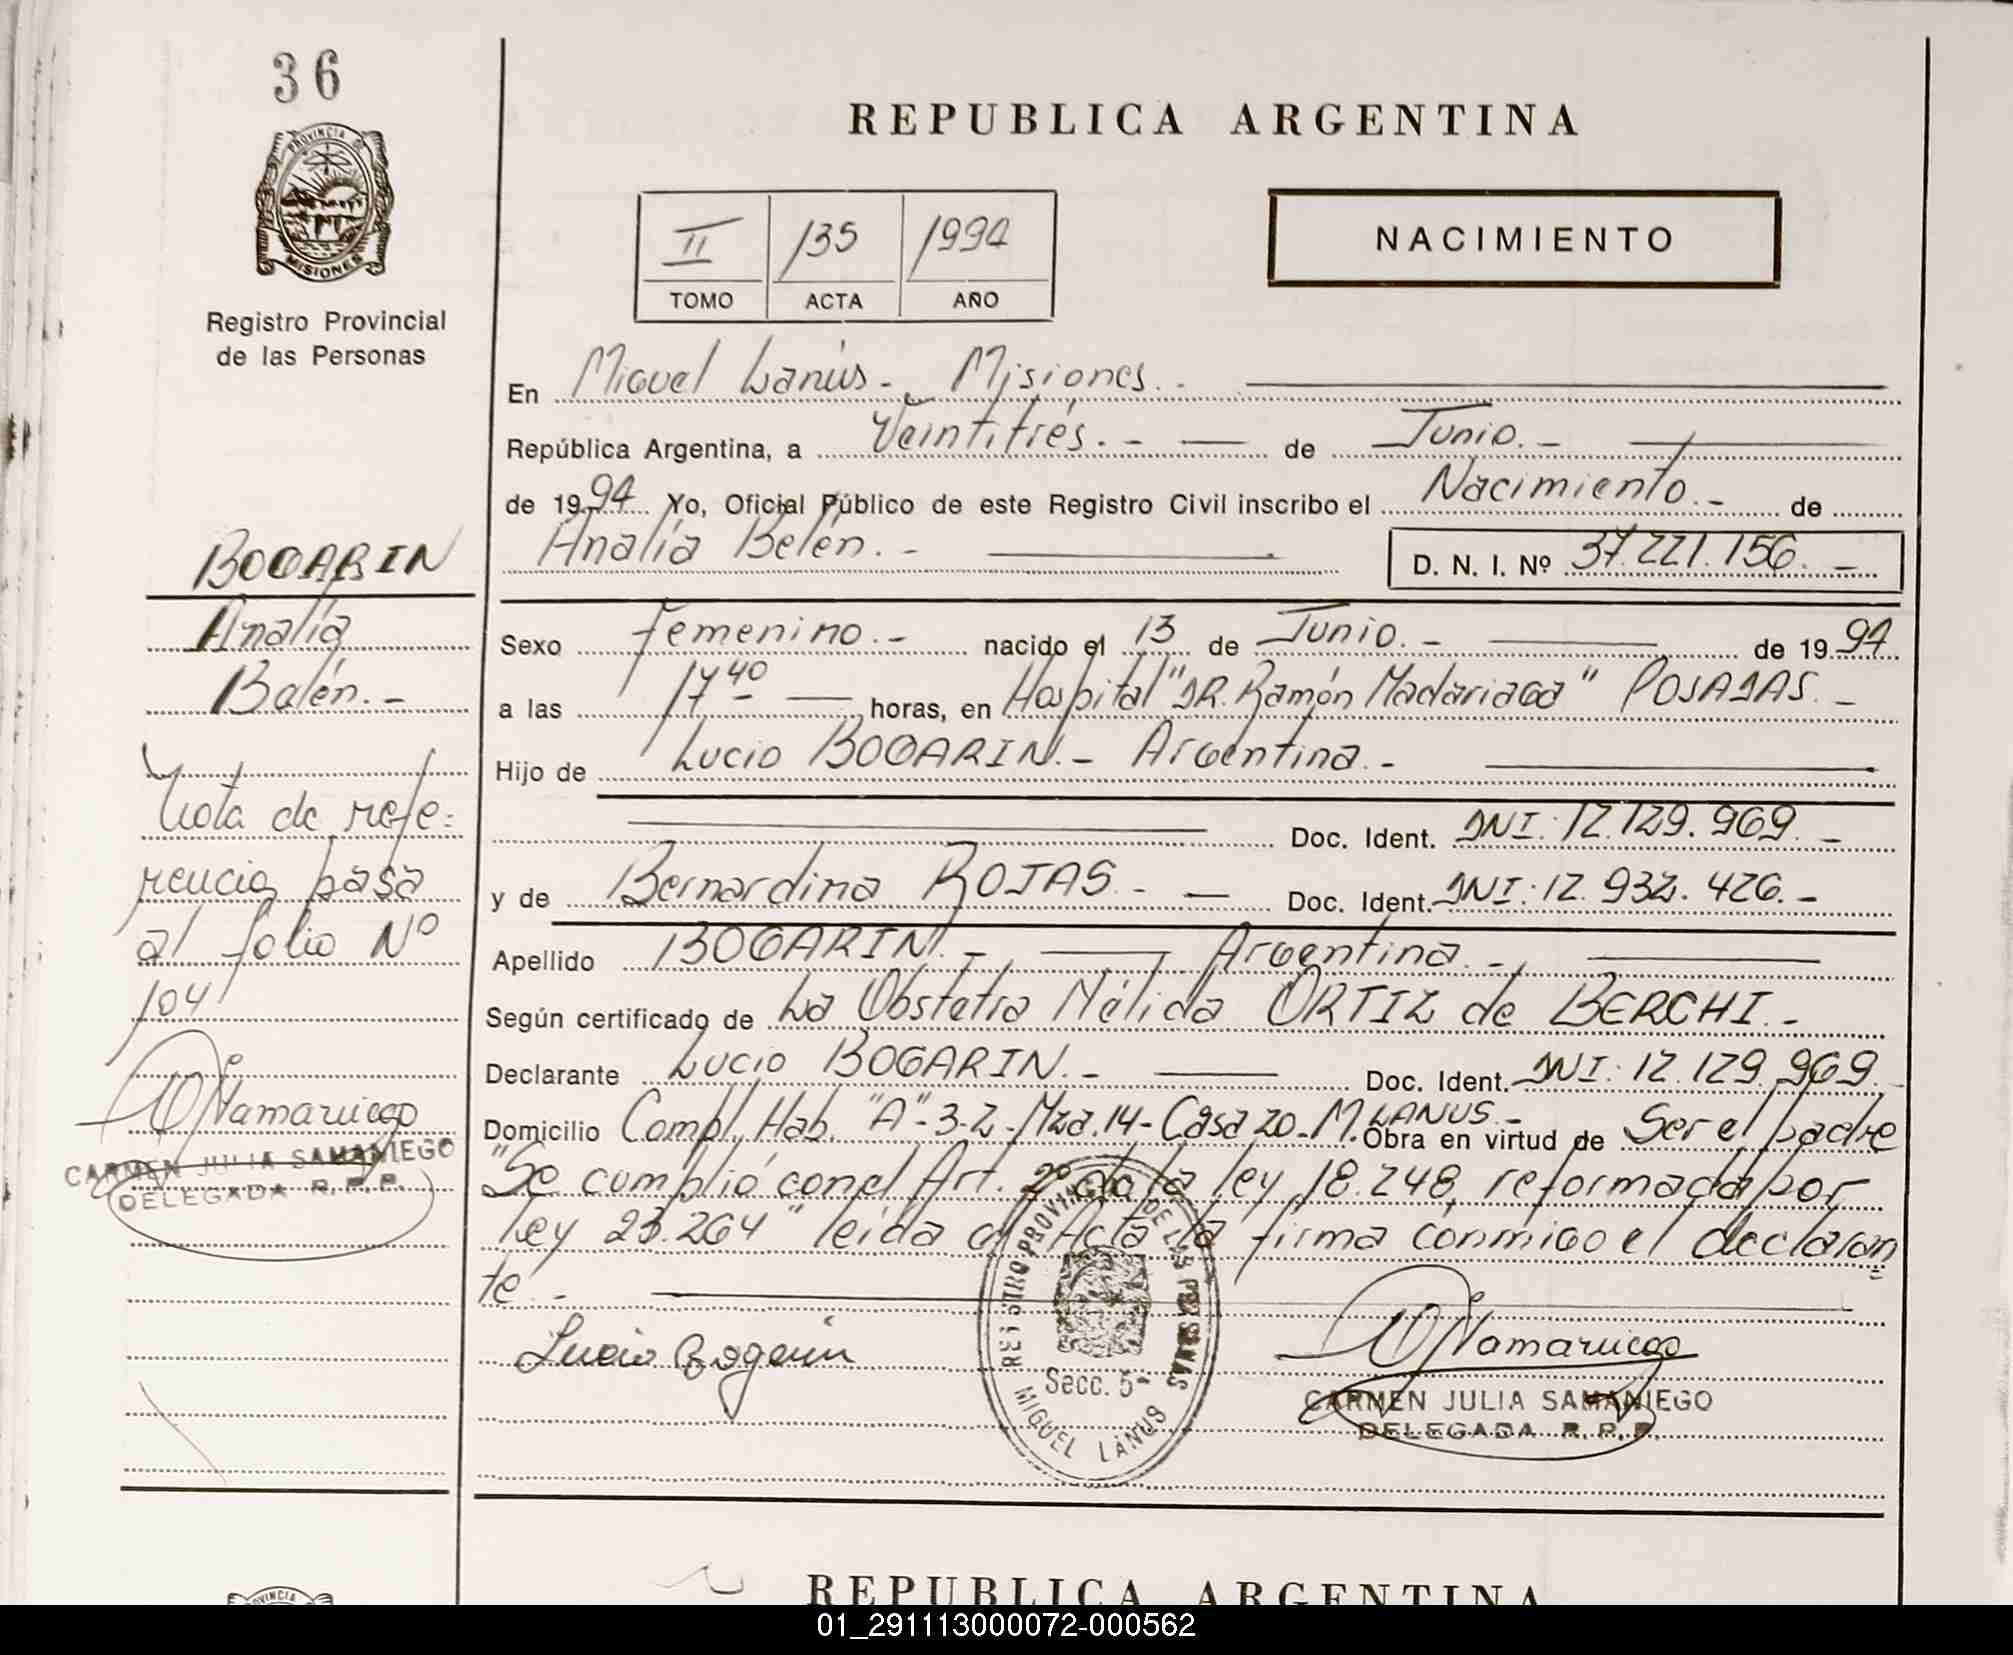 36
PROVINCIA DE
MISIONES
Registro Provincial
de las Personas
REPUBLICA ARGENTINA
II 135 1994
TOMO ACTA AÑO
NACIMIENTO
En Miguel Lanús.- Misiones.-
República Argentina, a Veintitrés.- de Junio.-
de 1994 Yo, Oficial Público de este Registro Civil inscribo el Nacimiento.- de
Analía Belén.- D. N. I. Nº 37.221.156.-
BOGARIN
Analía
Belén.-
Sexo femenino.- nacido el 13 de Junio.- de 1994
a las 17 40 horas, en Hospital "DR. Ramón Madariaga" POSADAS.-
Hijo de Lucio BOGARIN.- Argentina.-
Doc. Ident. DNI: 12.129.969.-
y de Bernardina ROJAS.- Doc. Ident. DNI: 12.932.426.-
Apellido BOGARIN.- Argentina.-
Según certificado de La Obstetra Nélida ORTIZ de BERCHI.-
Declarante Lucio BOGARIN.- Doc. Ident. DNI: 12.129.969.
Domicilio Compl. Hab. "A"-3-2-Mza.14-Casa 20-M.LANUS- Obra en virtud de Ser el padre
"Se cumplió con el Art. 2º de la ley 18.248, reformada por
ley 23.264" leída el Acta la firma conmigo el declaran=
te.-
Nota de refe=
rencia pasa
al folio Nº
104
CARMEN JULIA SAMANIEGO
DELEGADA R. P. P.
Lucio Bogarin
REGISTRO PROVINCIAL DE LAS PERSONAS
Secc. 5ª
MIGUEL LANUS
CARMEN JULIA SAMANIEGO
DELEGADA R. P. P.
REPUBLICA ARGENTINA
01_291113000072-000562